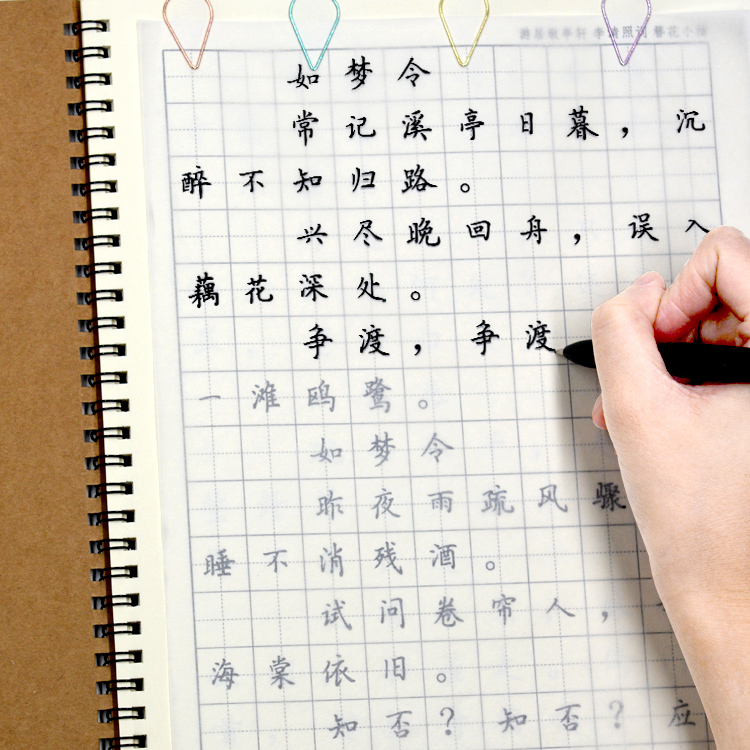 漱居敬亭轩 李清照词 簪花小楷
如梦令
常记溪亭日暮，沉
醉不知归路。
兴尽晚回舟，误入
藕花深处。
争渡，争渡
一滩鸥鹭。
如梦令
昨夜雨疏风骤
睡不消残酒。
试问卷帘人，
海棠依旧。
知否？知否？应